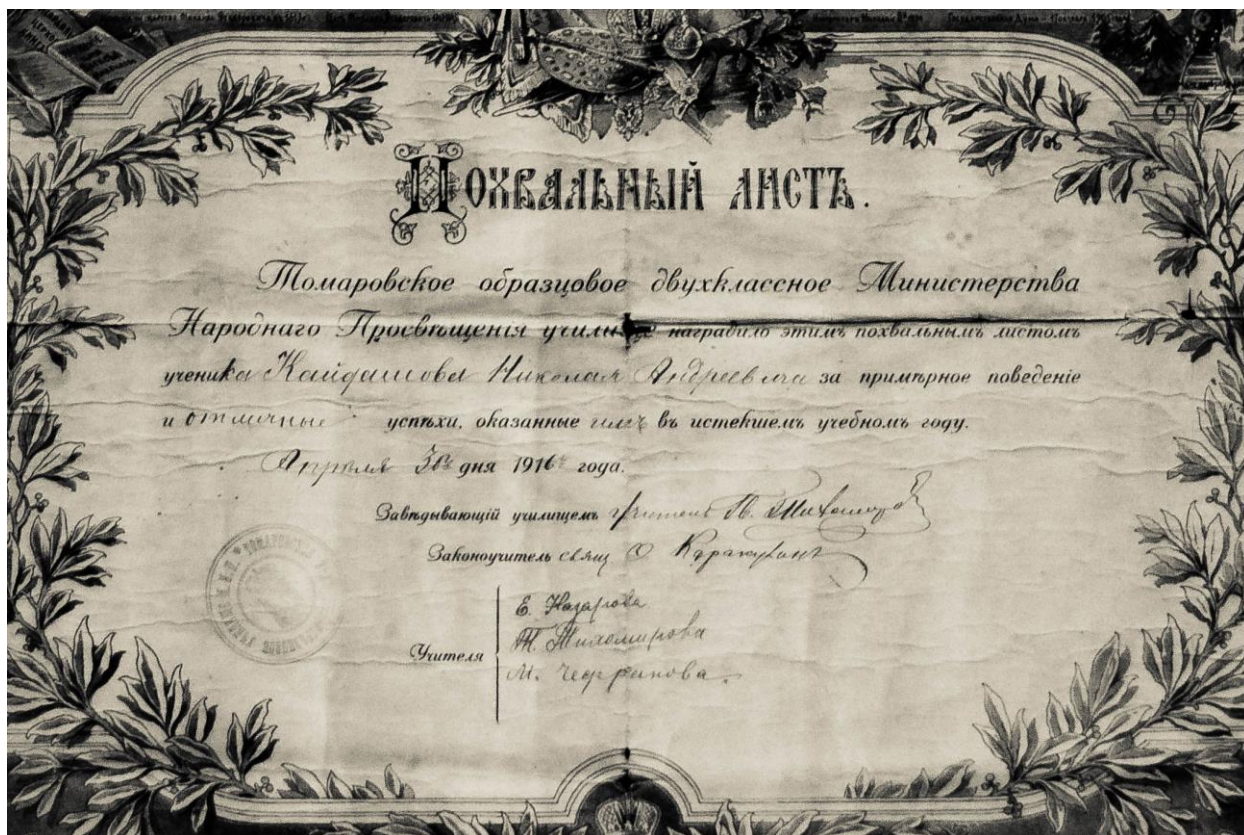 Государственная Дума
Похвальный листъ.
Томаровское образцовое двухклассное Министерства
Народнаго Просвѣщенія училище наградило этимъ похвальнымъ листомъ
ученика Кайдашова Николая Андреевича за примѣрное поведеніе
и отличные успѣхи, оказанные имъ въ истекшемъ учебномъ году.
Апрѣля 30го дня 1916го года.
Завѣдывающій училищемъ учитель П. Тихомиров
Законоучитель свящ О
Е. Назарова
Учителя Т. Тихомирова
М. Чефранова.